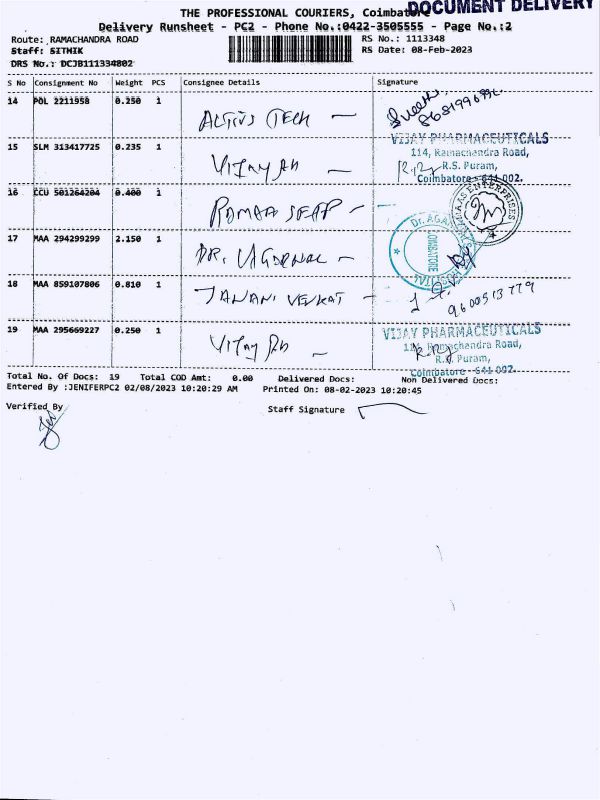 DOCUMENT DELIVERY
THE PROFESSIONAL COURIERS, Coimbatore
Delivery Runsheet - PC2 - Phone No.:0422-3505555 - Page No.:2
Route: RAMACHANDRA ROAD RS No.: 1113348
Staff: SITHIK RS Date: 08-Feb-2023
DRS No.: DCJB111334802
S No Consignment No Weight PCS Consignee Details Signature
14 POL 2211958 0.250 1
VIJAY PHARMACEUTICALS
15 SLM 313417725 0.235 1 Vijay Ph 114, Ramachandra Road,
R.S. Puram,
Coimbatore - 641 002.
16 CCU 501264204 0.400 1
17 MAA 294299299 2.150 1 Dr. Dr. AGA COIMBATORE
18 MAA 859107806 0.810 1 JANANI VENKAT 9600513779
19 MAA 295669227 0.250 1 Vijay Ph VIJAY PHARMACEUTICALS
Ramachandra Road,
R.S. Puram,
Coimbatore - 641 002.
Total No. Of Docs: 19 Total COD Amt: 0.00 Delivered Docs: Non Delivered Docs:
Entered By :JENIFERPC2 02/08/2023 10:20:29 AM Printed On: 08-02-2023 10:20:45
Verified By Staff Signature